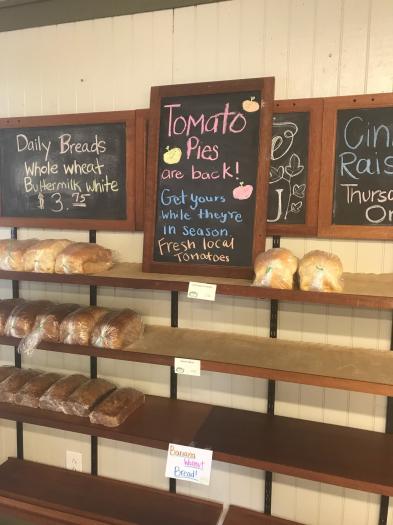 Daily Breads
Whole wheat
Buttermilk white
$3.75
Tomato
Pies
are back!
Get yours
while they're
in season
Fresh local
Tomatoes
Rais
Thursda
On
Banana
Walnut
Bread!